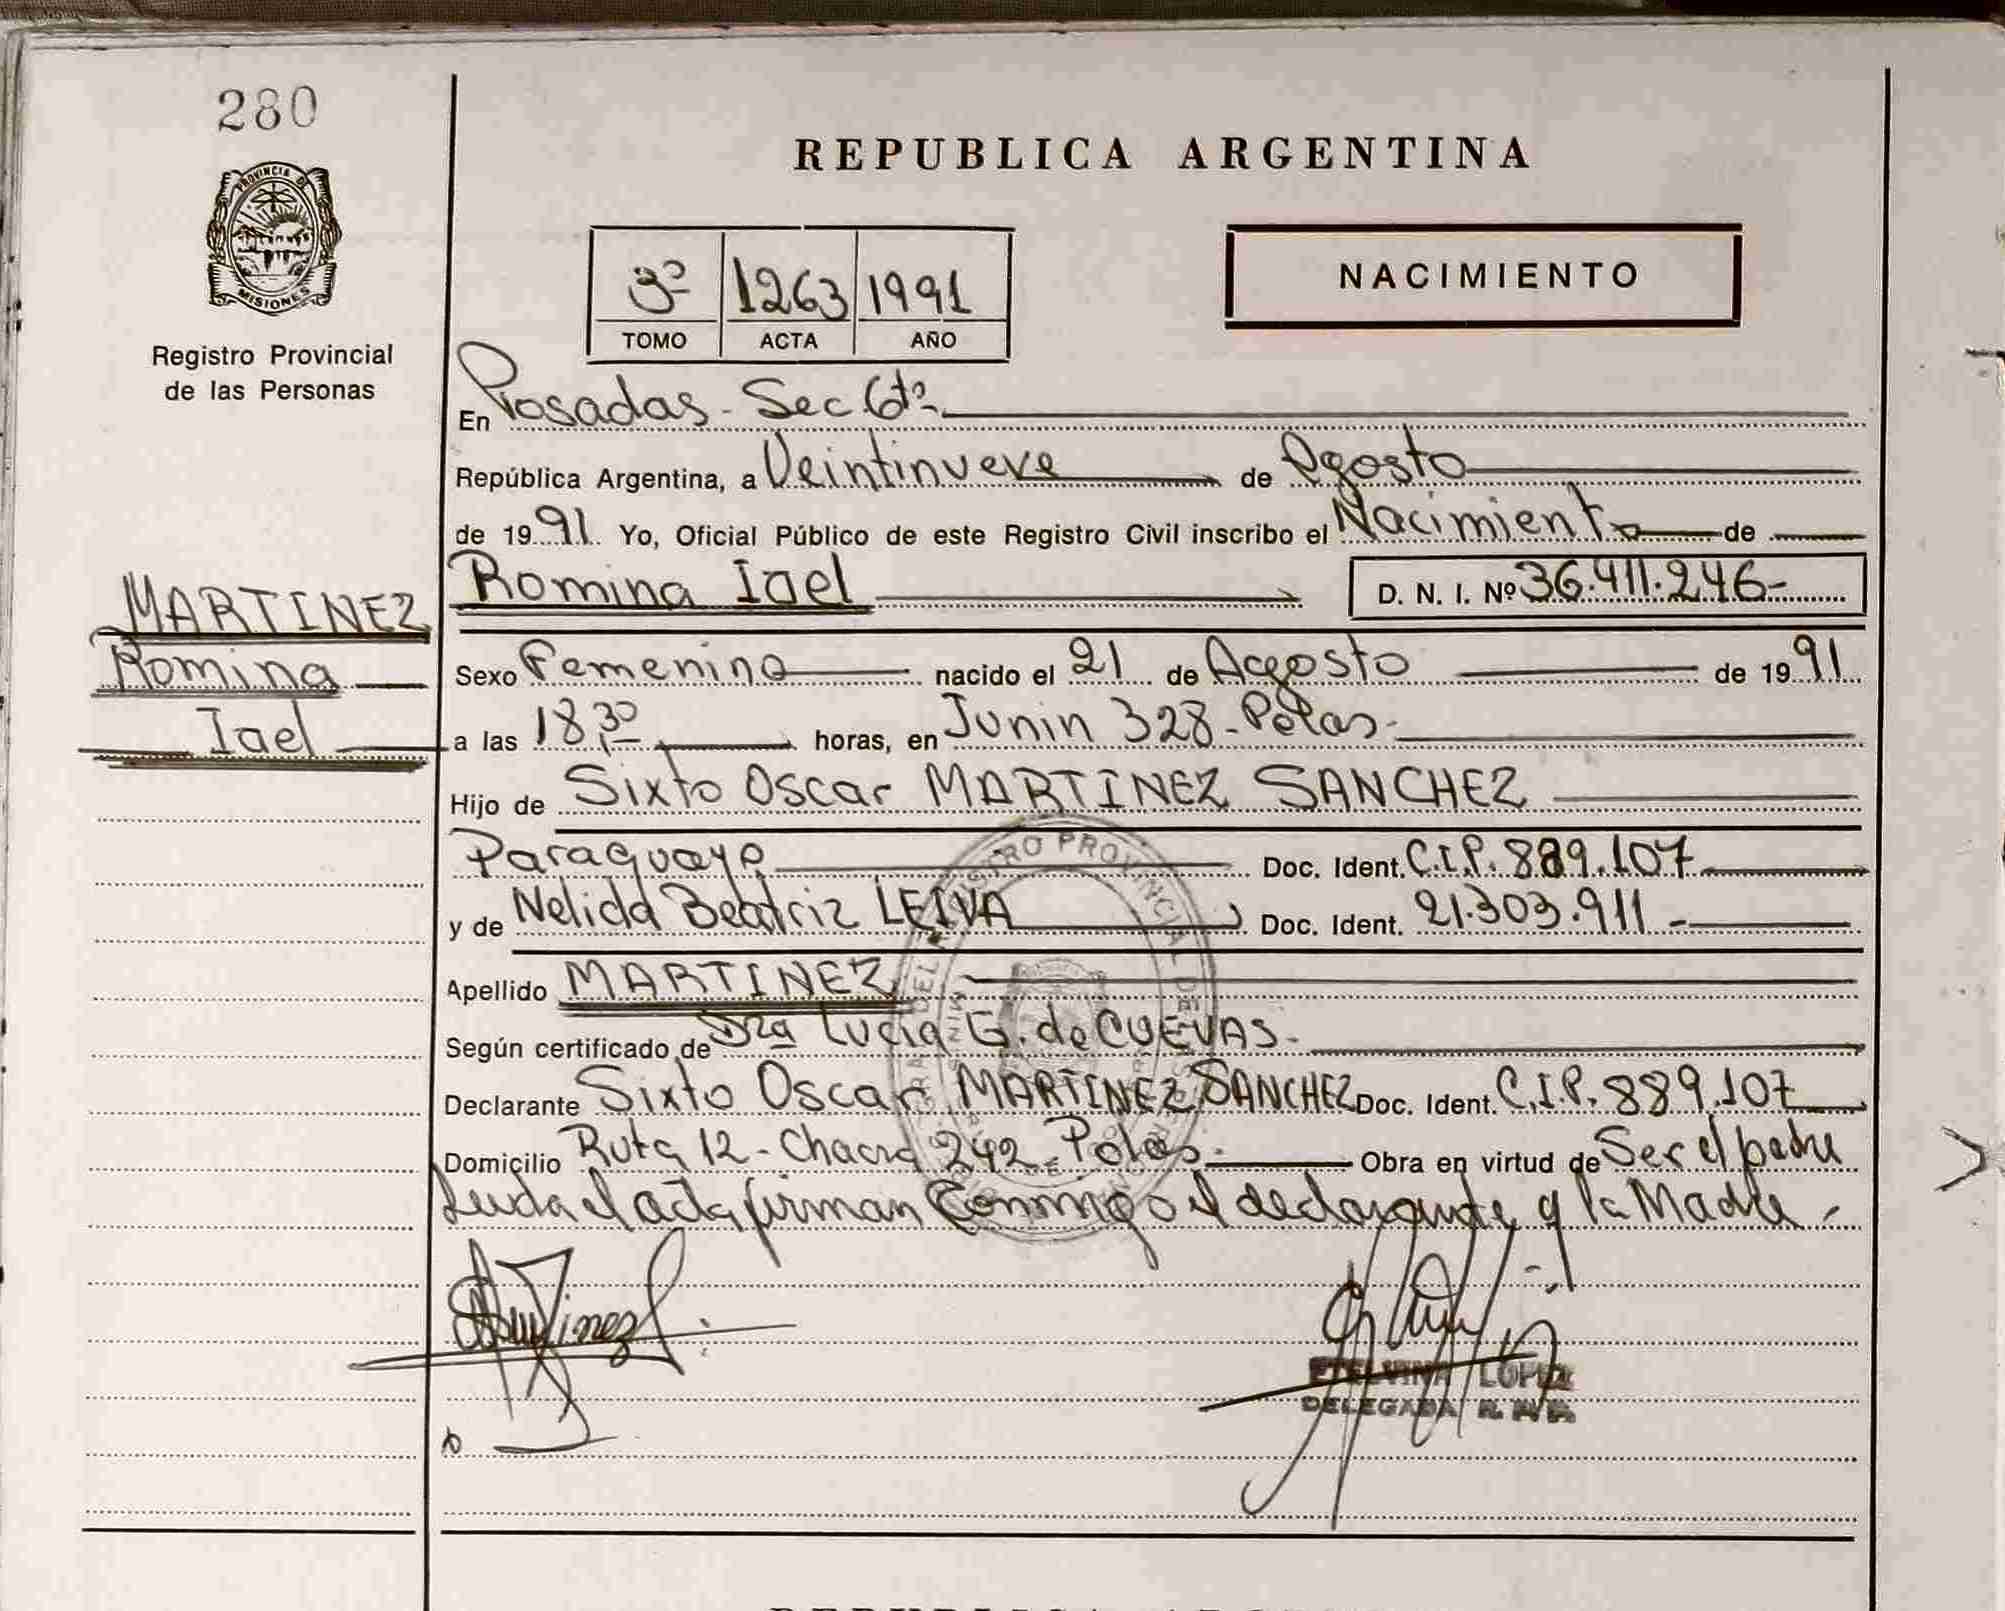 280
PROVINCIA DE
MISIONES
Registro Provincial
de las Personas
REPUBLICA ARGENTINA
3º 1263 1991
TOMO ACTA AÑO
NACIMIENTO
En Posadas - Sec. 6ta
República Argentina, a Veintinueve de Agosto
de 1991 Yo, Oficial Público de este Registro Civil inscribo el Nacimiento de
Romina Iael D. N. I. Nº 36.411.246-
MARTINEZ
Romina
Iael
Sexo Femenino nacido el 21 de Agosto de 1991
a las 18,30 horas, en Junin 328 - Pdas-
Hijo de Sixto Oscar MARTINEZ SANCHEZ
Paraguayo Doc. Ident. C.I.P. 889.107
y de Nelida Beatriz LEIVA Doc. Ident. 21.303.911-
Apellido MARTINEZ
Según certificado de Dra Lucia G. de CUEVAS-
Declarante Sixto Oscar MARTINEZ SANCHEZ Doc. Ident. C.I.P. 889.107
Domicilio Ruta 12 - Chacra 242 Pdas- Obra en virtud de Ser el padre
Leida el acta firman Conmigo el declarante y la Madre -
ETELVINA LOPEZ
DELEGADA